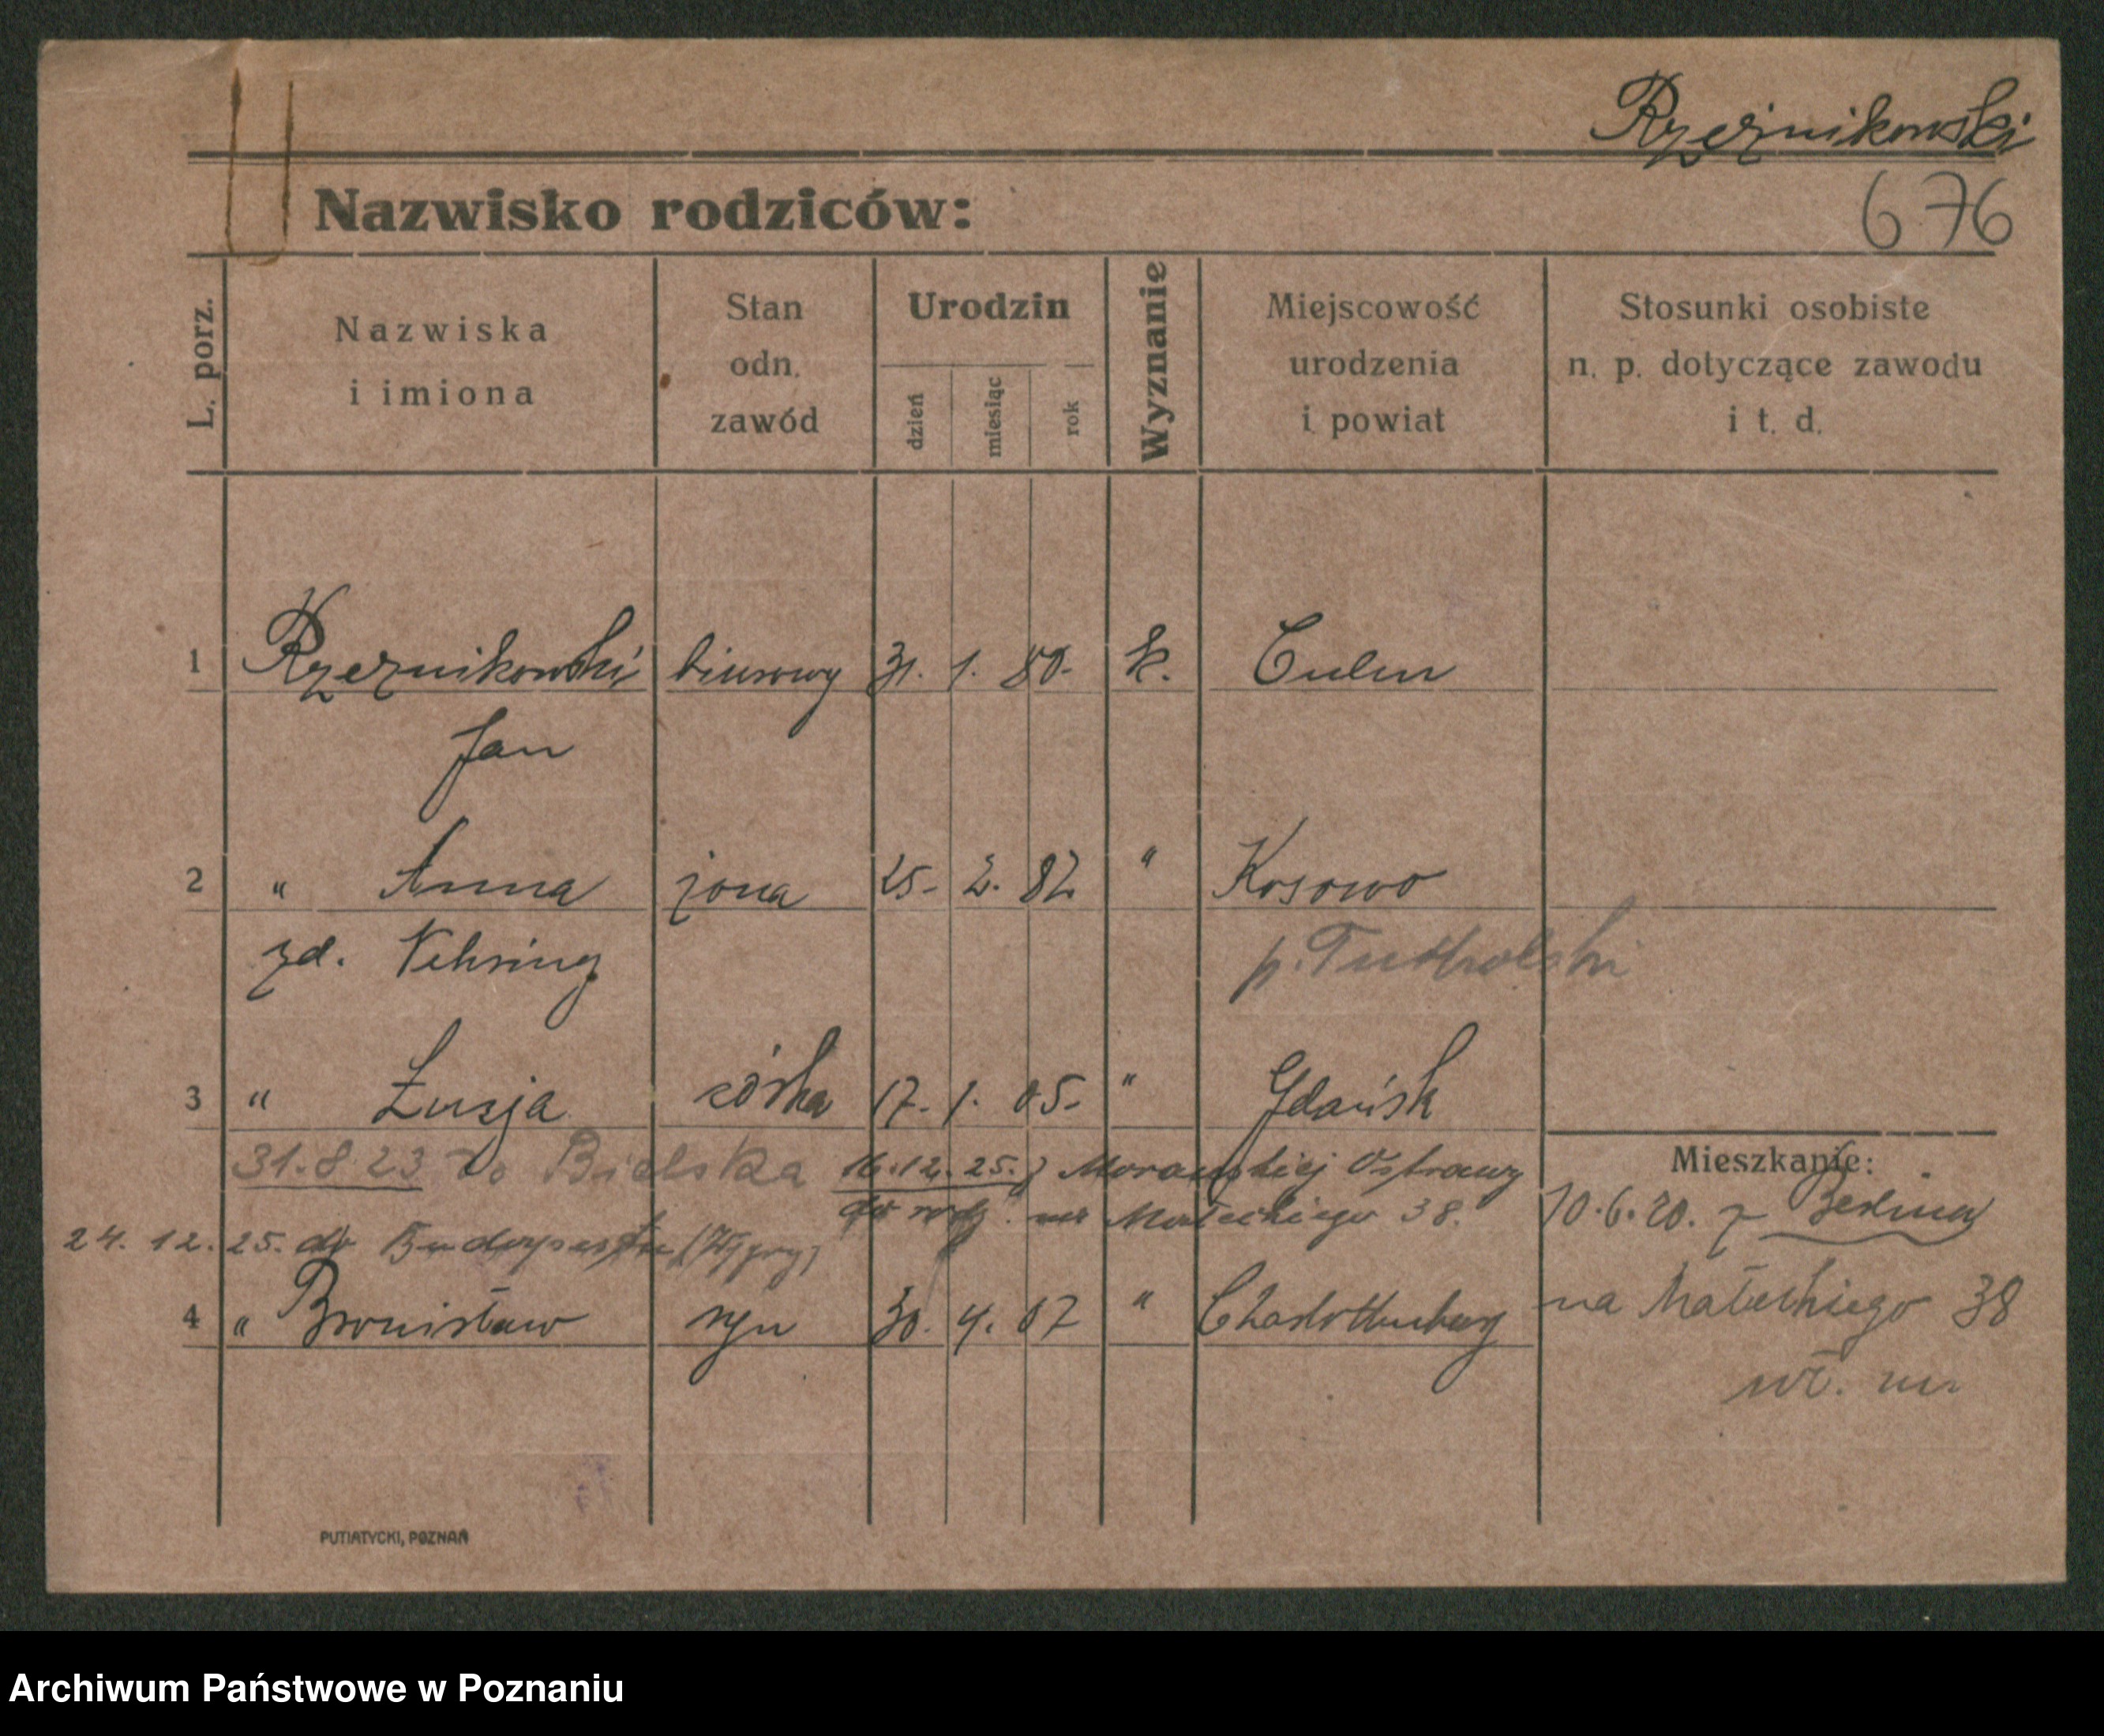 Rzeźnikowski
676
Nazwisko rodziców:
L. porz.
Nazwiska
i imiona
Stan
odn.
zawód
Urodzin
dzień
miesiąc
rok
Wyznanie
Miejscowość
urodzenia
i powiat
Stosunki osobiste
n. p. dotyczące zawodu
i t. d.
1 Rzeznikowski biurowy 31. 1. 80. k. Culm
Jan
2 " Anna żona 25. 2. 82 " Kosowo
zd. Nehring p. Tucholski
3 " Łucja córka 17. 1. 05. " Gdańsk
31.8.23 do Bielska 16.12.25. z Morawskiej Ostrawy
do rodz. na Małeckiego 38.
24. 12. 25. do Budapesztu (Węgry)
Mieszkanie:
10.6.20. z Berlina
na Małeckiego 38
4 " Bronisław syn 30. 4. 07 " Charlottenburg
PUTIATYCKI, POZNAŃ
Archiwum Państwowe w Poznaniu